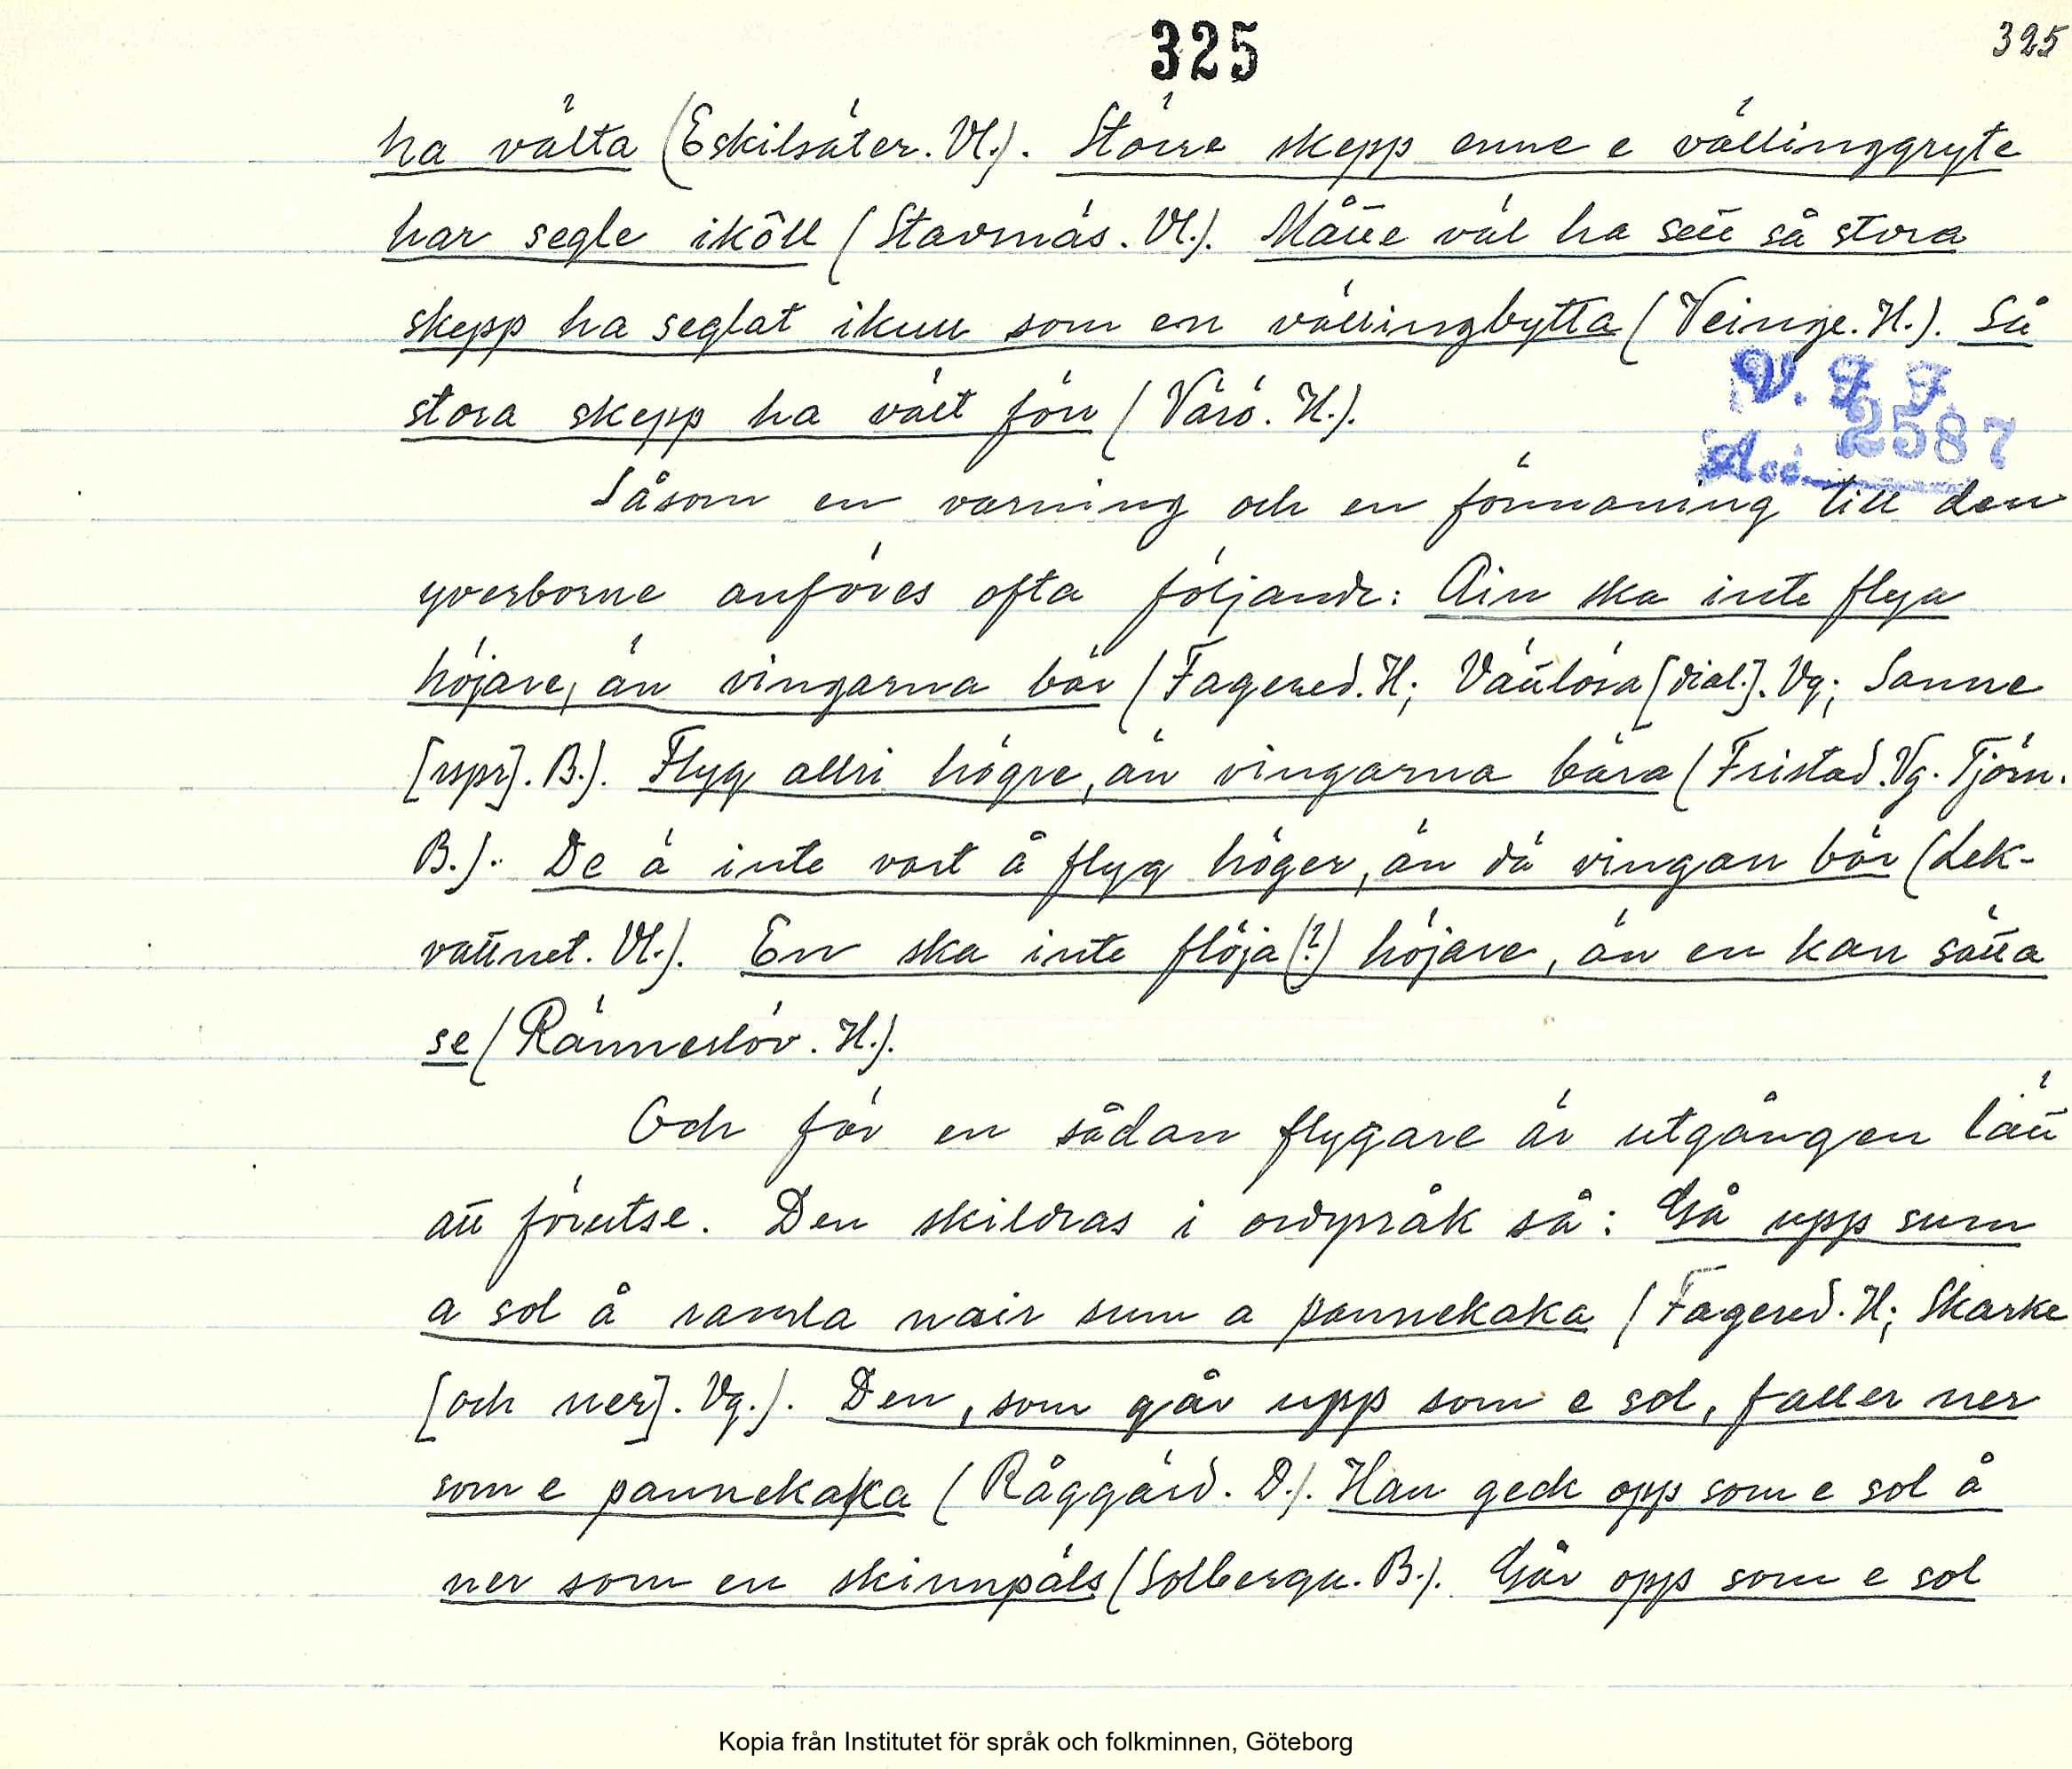 325
325
ha välta (Eskilsäter. Vl.). Större skepp enne e vällinggryte
har segle iköll (Stavnäs. Vl.). Måtte väl ha sett så stora
skepp ha seglat ikull som en vällingbytta (Veinge. H.). Så
stora skepp ha vält förr (Värö. H.).
V. F. F.
Acc. 2587
Såsom en varning och en förmaning till den
yverborne anföres ofta följande: Ain ska inte flyja
höjare, än vingarna bär (Fagered. H; Vättlösa [dial.]. Vg; Sanne
[rspr]. B.). Flyg allri högre, än vingarna bära (Fristad. Vg. Tjörn.
B.). De ä inte vart å flyg höger, än dä vingan bär (Lek-
vattnet. Vl.). En ska inte flöja (?) höjare, än en kan sätta
se (Ränneslöv. H.).
Och för en sådan flygare är utgången lätt
att förutse. Den skildras i ordspråk så: Gå upp sum
a sol å ramla nair sum a pannekaka (Fagered. H; Skarke
[och ner]. Vg.). Den, som går upp som e sol, faller ner
som e pannekaka (Råggärd. D.). Han geck opp som e sol å
ner som en skinnpäls (Solberga. B.). Går opp som e sol
Kopia från Institutet för språk och folkminnen, Göteborg